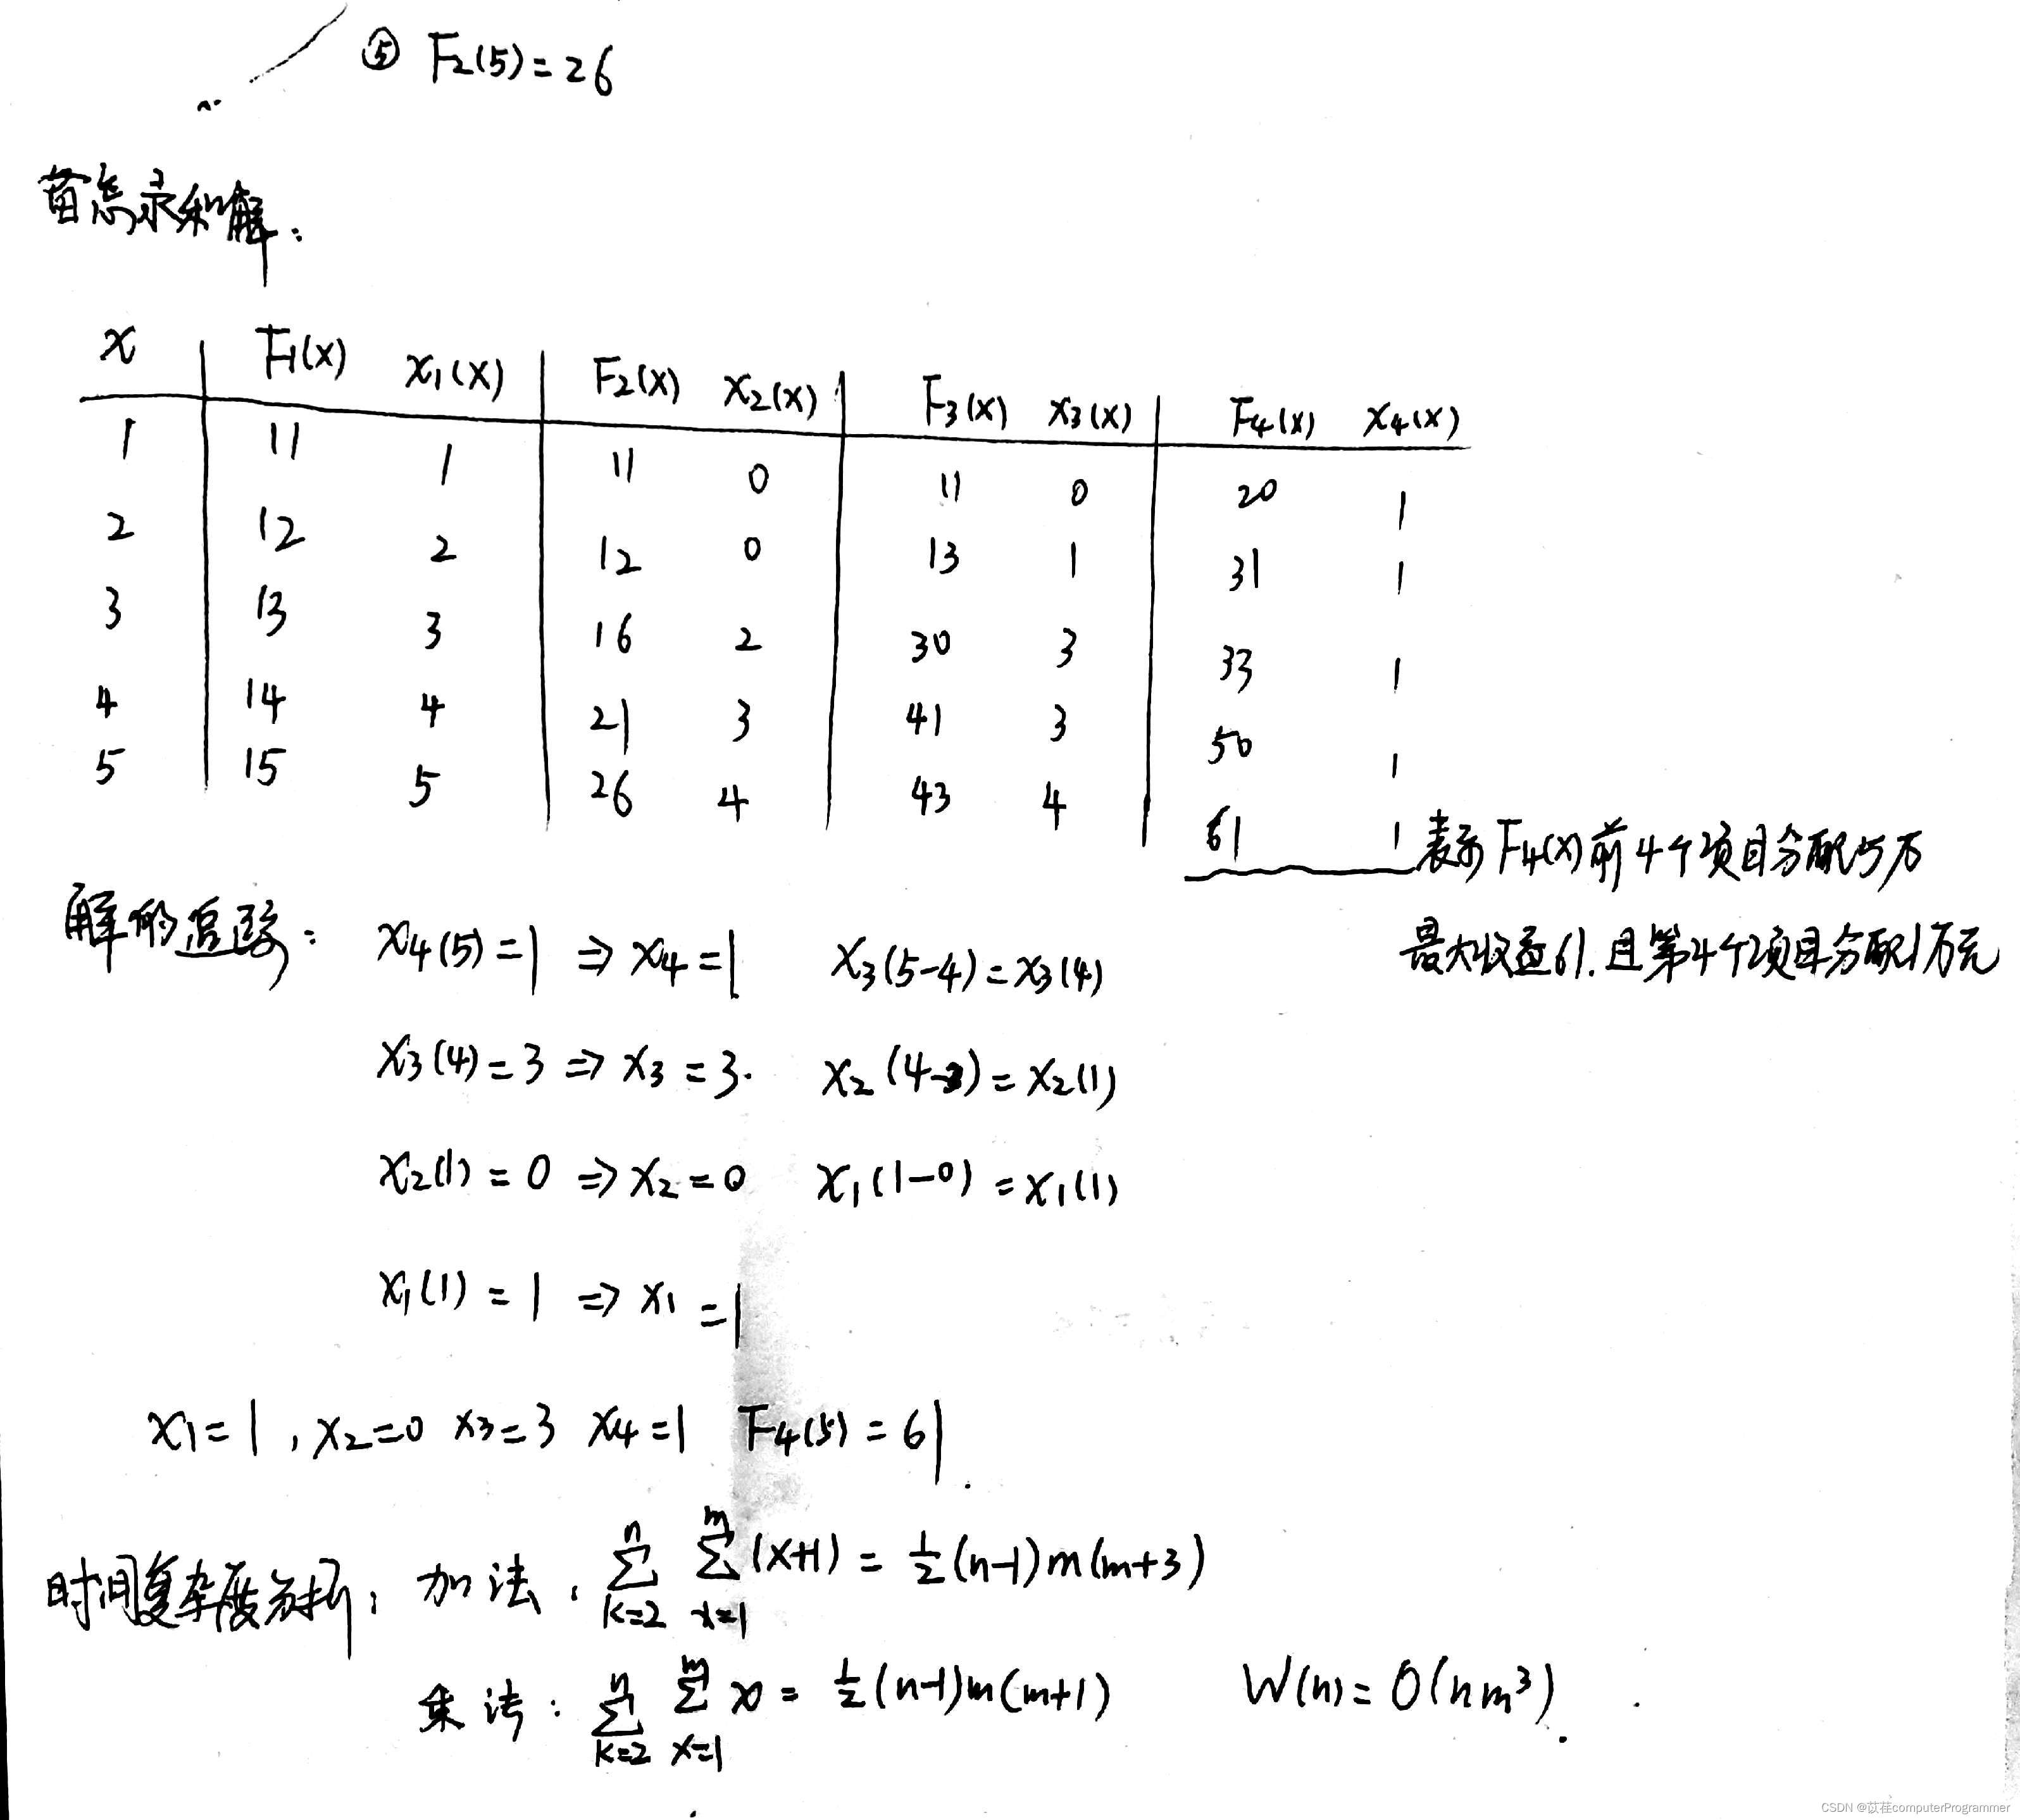 ⑤ F₂(5)=26
备忘录和解:
x F₁(x) x₁(x) F₂(x) x₂(x) F₃(x) x₃(x) F₄(x) x₄(x)
1 11 1 11 0 11 0 20 1
2 12 2 12 0 13 1 31 1
3 13 3 16 2 30 3 33 1
4 14 4 21 3 41 3 50 1
5 15 5 26 4 43 4 61 1 表示F₄(x)前4个项目分配5万
最大收益61.且第4个项目分配1万元
解的追踪: x₄(5)=1 ⇒ x₄=1 x₃(5-4)=x₃(4)
x₃(4)=3 ⇒ x₃=3. x₂(4-3)=x₂(1)
x₂(1)=0 ⇒ x₂=0 x₁(1-0)=x₁(1)
x₁(1)=1 ⇒ x₁=1
x₁=1,x₂=0 x₃=3 x₄=1 F₄(5)=61.
时间复杂度分析: 加法: ∑_{k=2}^{n} ∑_{x=1}^{m} (x+1) = ½(n-1)m(m+3)
乘法: ∑_{k=2}^{n} ∑_{x=1}^{m} x = ½(n-1)m(m+1) W(n)=O(nm³).
CSDN @苡荏computerProgrammer